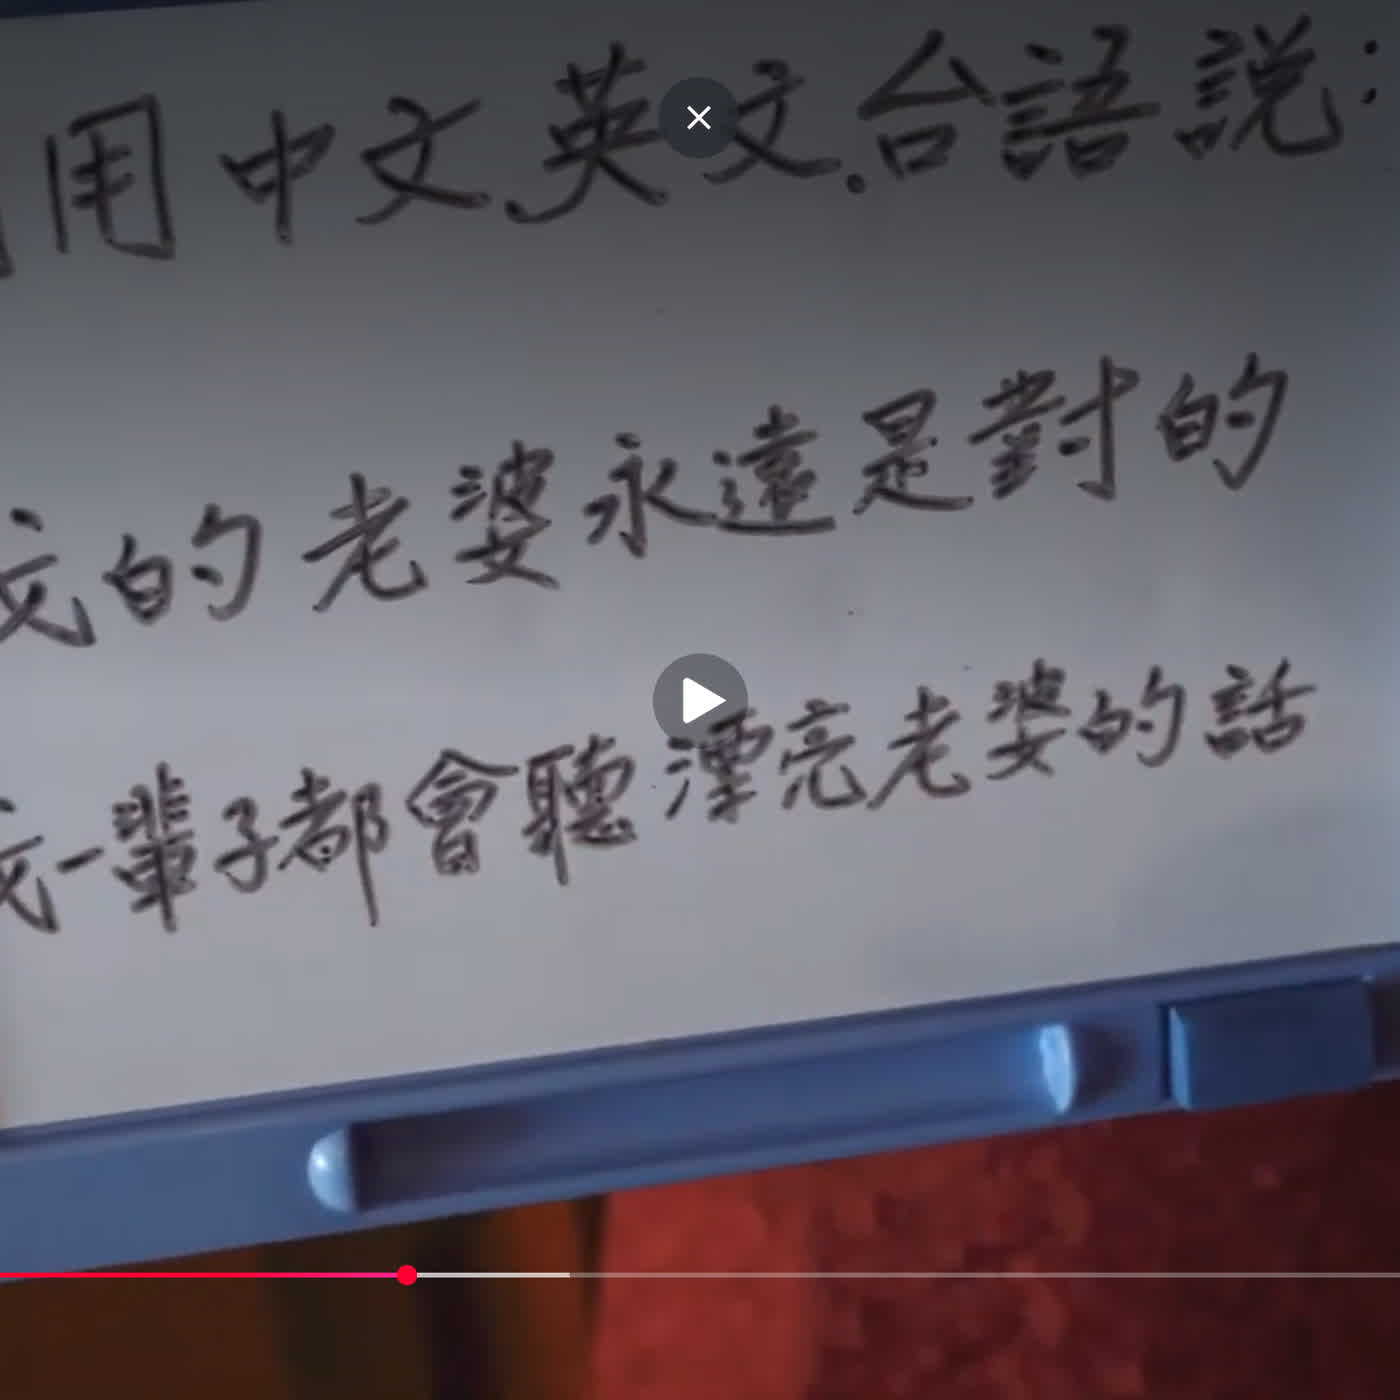 用中文、英文、台語說:
我的老婆永遠是對的
我一輩子都會聽漂亮老婆的話